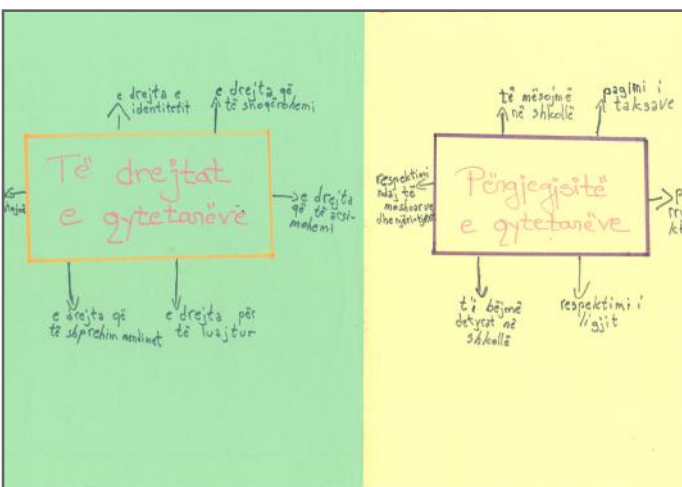 e drejta e
identitetit
e drejta që
të shoqërohemi
Të drejtat
e qytetanëve
e drejta
që të arsi-
mohemi
e drejta që
të shprehim mendimet
e drejta për
të luajtur
të mësojmë
në shkollë
pagimi i
taksave
respektimi
ndaj të
moshuarve
dhe njëri-tjetrit
Përgjegjsitë
e qytetanëve
t'i bëjmë
detyrat në
shkollë
respektimi i
ligjit